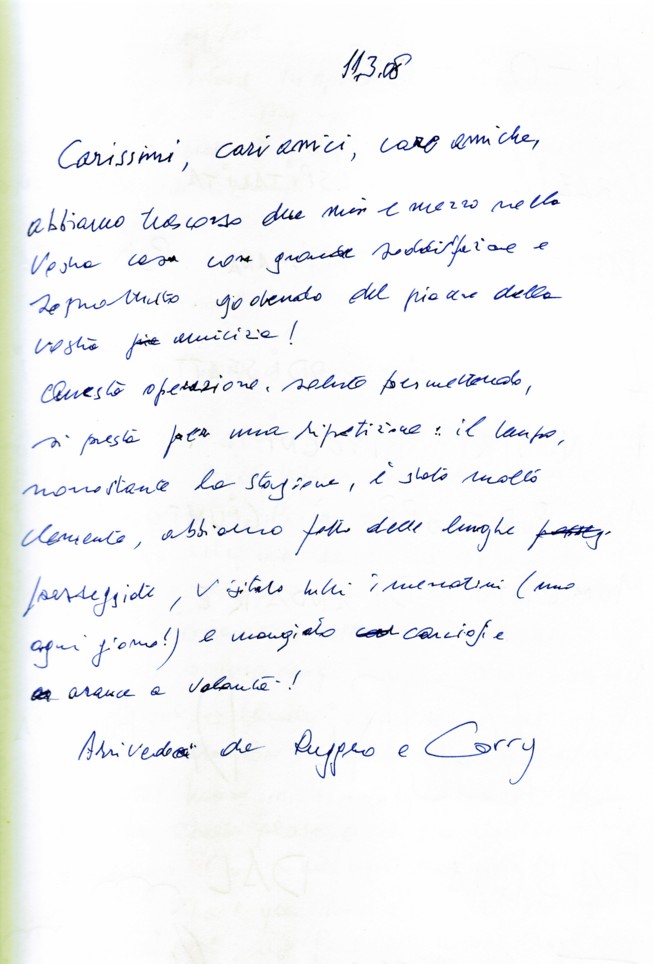 11.3.08
Carissimi, cari amici, care amiche,
abbiamo trascorso due mesi e mezzo nella
Vostra casa con grande soddisfazione e
soprattutto godendo del piacere della
vostra amicizia!
Questa operazione, salute permettendo,
si presta per una ripetizione: il tempo,
nonostante la stagione, è stato molto
clemente, abbiamo fatto delle lunghe
passeggiate, visitato tutti i mercatini (uno
ogni giorno!) e mangiato carciofi e
arance a volontà!
Arrivederci da Ruggero e Corry